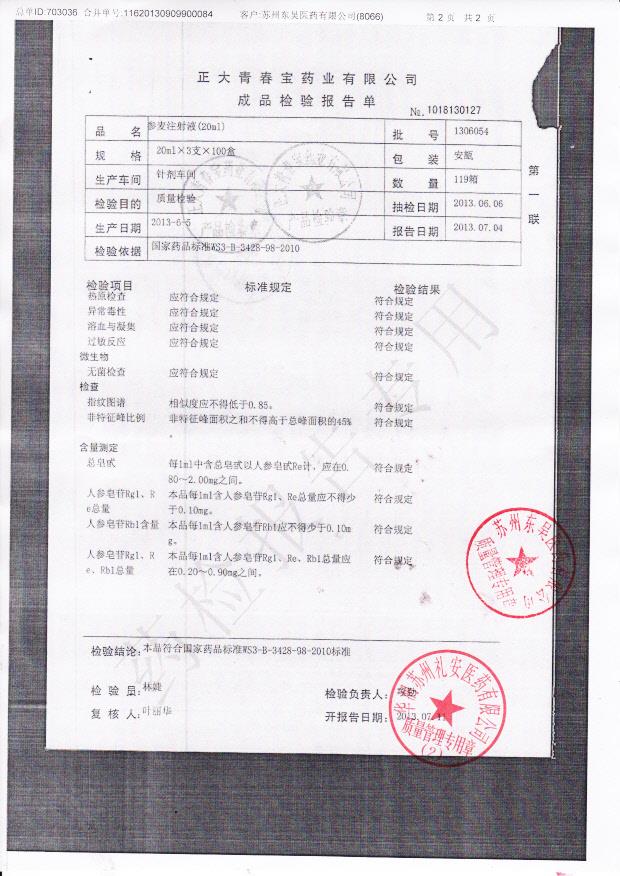 总单ID:703036 合并单号:11620130909900084 客户:苏州东吴医药有限公司(8066) 第2页 共2页
正大青春宝药业有限公司
成品检验报告单
No. 1018130127
品名 参麦注射液(20ml) 批号 1306054
规格 20ml×3支×100盒 包装 安瓿
生产车间 针剂车间 数量 119箱
检验目的 质量检验 抽检日期 2013.06.06
生产日期 2013-6-5 报告日期 2013.07.04
检验依据 国家药品标准WS3-B-3428-98-2010
第一联
检验项目 标准规定 检验结果
热原检查 应符合规定 符合规定
异常毒性 应符合规定 符合规定
溶血与凝集 应符合规定 符合规定
过敏反应 应符合规定 符合规定
微生物
无菌检查 应符合规定 符合规定
检查
指纹图谱 相似度应不得低于0.85。 符合规定
非特征峰比例 非特征峰面积之和不得高于总峰面积的45% 符合规定
含量测定
总皂甙 每1ml中含总皂甙以人参皂甙Re计，应在0. 符合规定
80～2.00mg之间。
人参皂苷Rg1、R 本品每1ml含人参皂苷Rg1、Re总量应不得少 符合规定
e总量 于0.10mg。
人参皂苷Rb1含量 本品每1ml含人参皂苷Rb1应不得少于0.10m 符合规定
g。
人参皂苷Rg1、R 本品每1ml含人参皂苷Rg1、Re、Rb1总量应 符合规定
e、Rb1总量 在0.20～0.90mg之间。
药检报告专用
苏州东吴医药有限公司
质量管理专用章
检验结论: 本品符合国家药品标准WS3-B-3428-98-2010标准
检验员: 林婕 检验负责人:
复核人: 叶丽华 开报告日期: 2013.07.11
华润苏州礼安医药有限公司
质量管理专用章
(2)
产品检验章
产品检验章